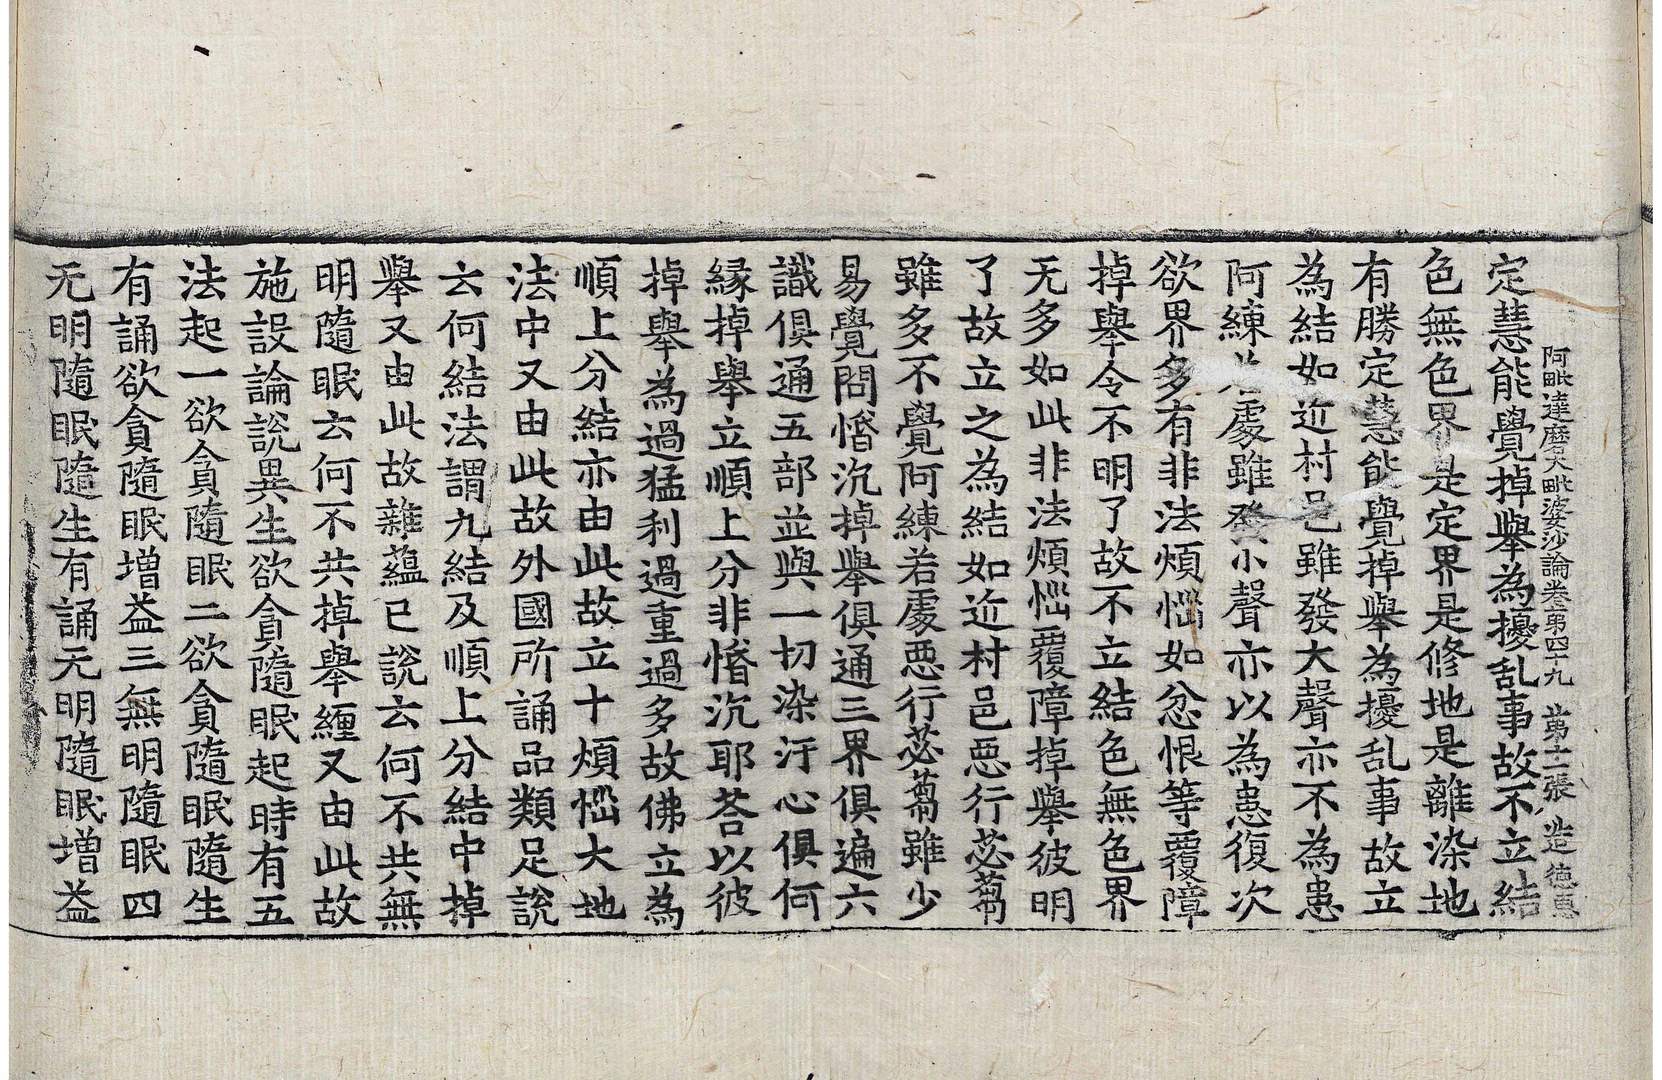 阿毗達磨大毗婆沙論卷第四十九　第十二張　造　德惠
定慧能覺掉舉為擾乱事故不立結
色無色界是定界是修地是離染地
有勝定慧能覺掉舉為擾乱事故立
為結如近村邑雖發大聲亦不為患
阿練若處雖發小聲亦以為患復次
欲界多有非法煩惱如忿恨等覆障
掉舉令不明了故不立結色無色界
无多如此非法煩惱覆障掉舉彼明
了故立之為結如近村邑惡行苾蒭
雖多不覺阿練若處惡行苾蒭雖少
易覺問惛沉掉舉俱通三界俱遍六
識俱通五部並與一切染汙心俱何
緣掉舉立順上分非惛沉耶荅以彼
掉舉為過猛利過重過多故佛立為
順上分結亦由此故立十煩惱大地
法中又由此故外國所誦品類足說
云何結法謂九結及順上分結中掉
舉又由此故雜蘊已說云何不共無
明隨眠云何不共掉舉纏又由此故
施設論說異生欲貪隨眠起時有五
法起一欲貪隨眠二欲貪隨眠隨生
有誦欲貪隨眠增益三無明隨眠四
无明隨眠隨生有誦无明隨眠增益